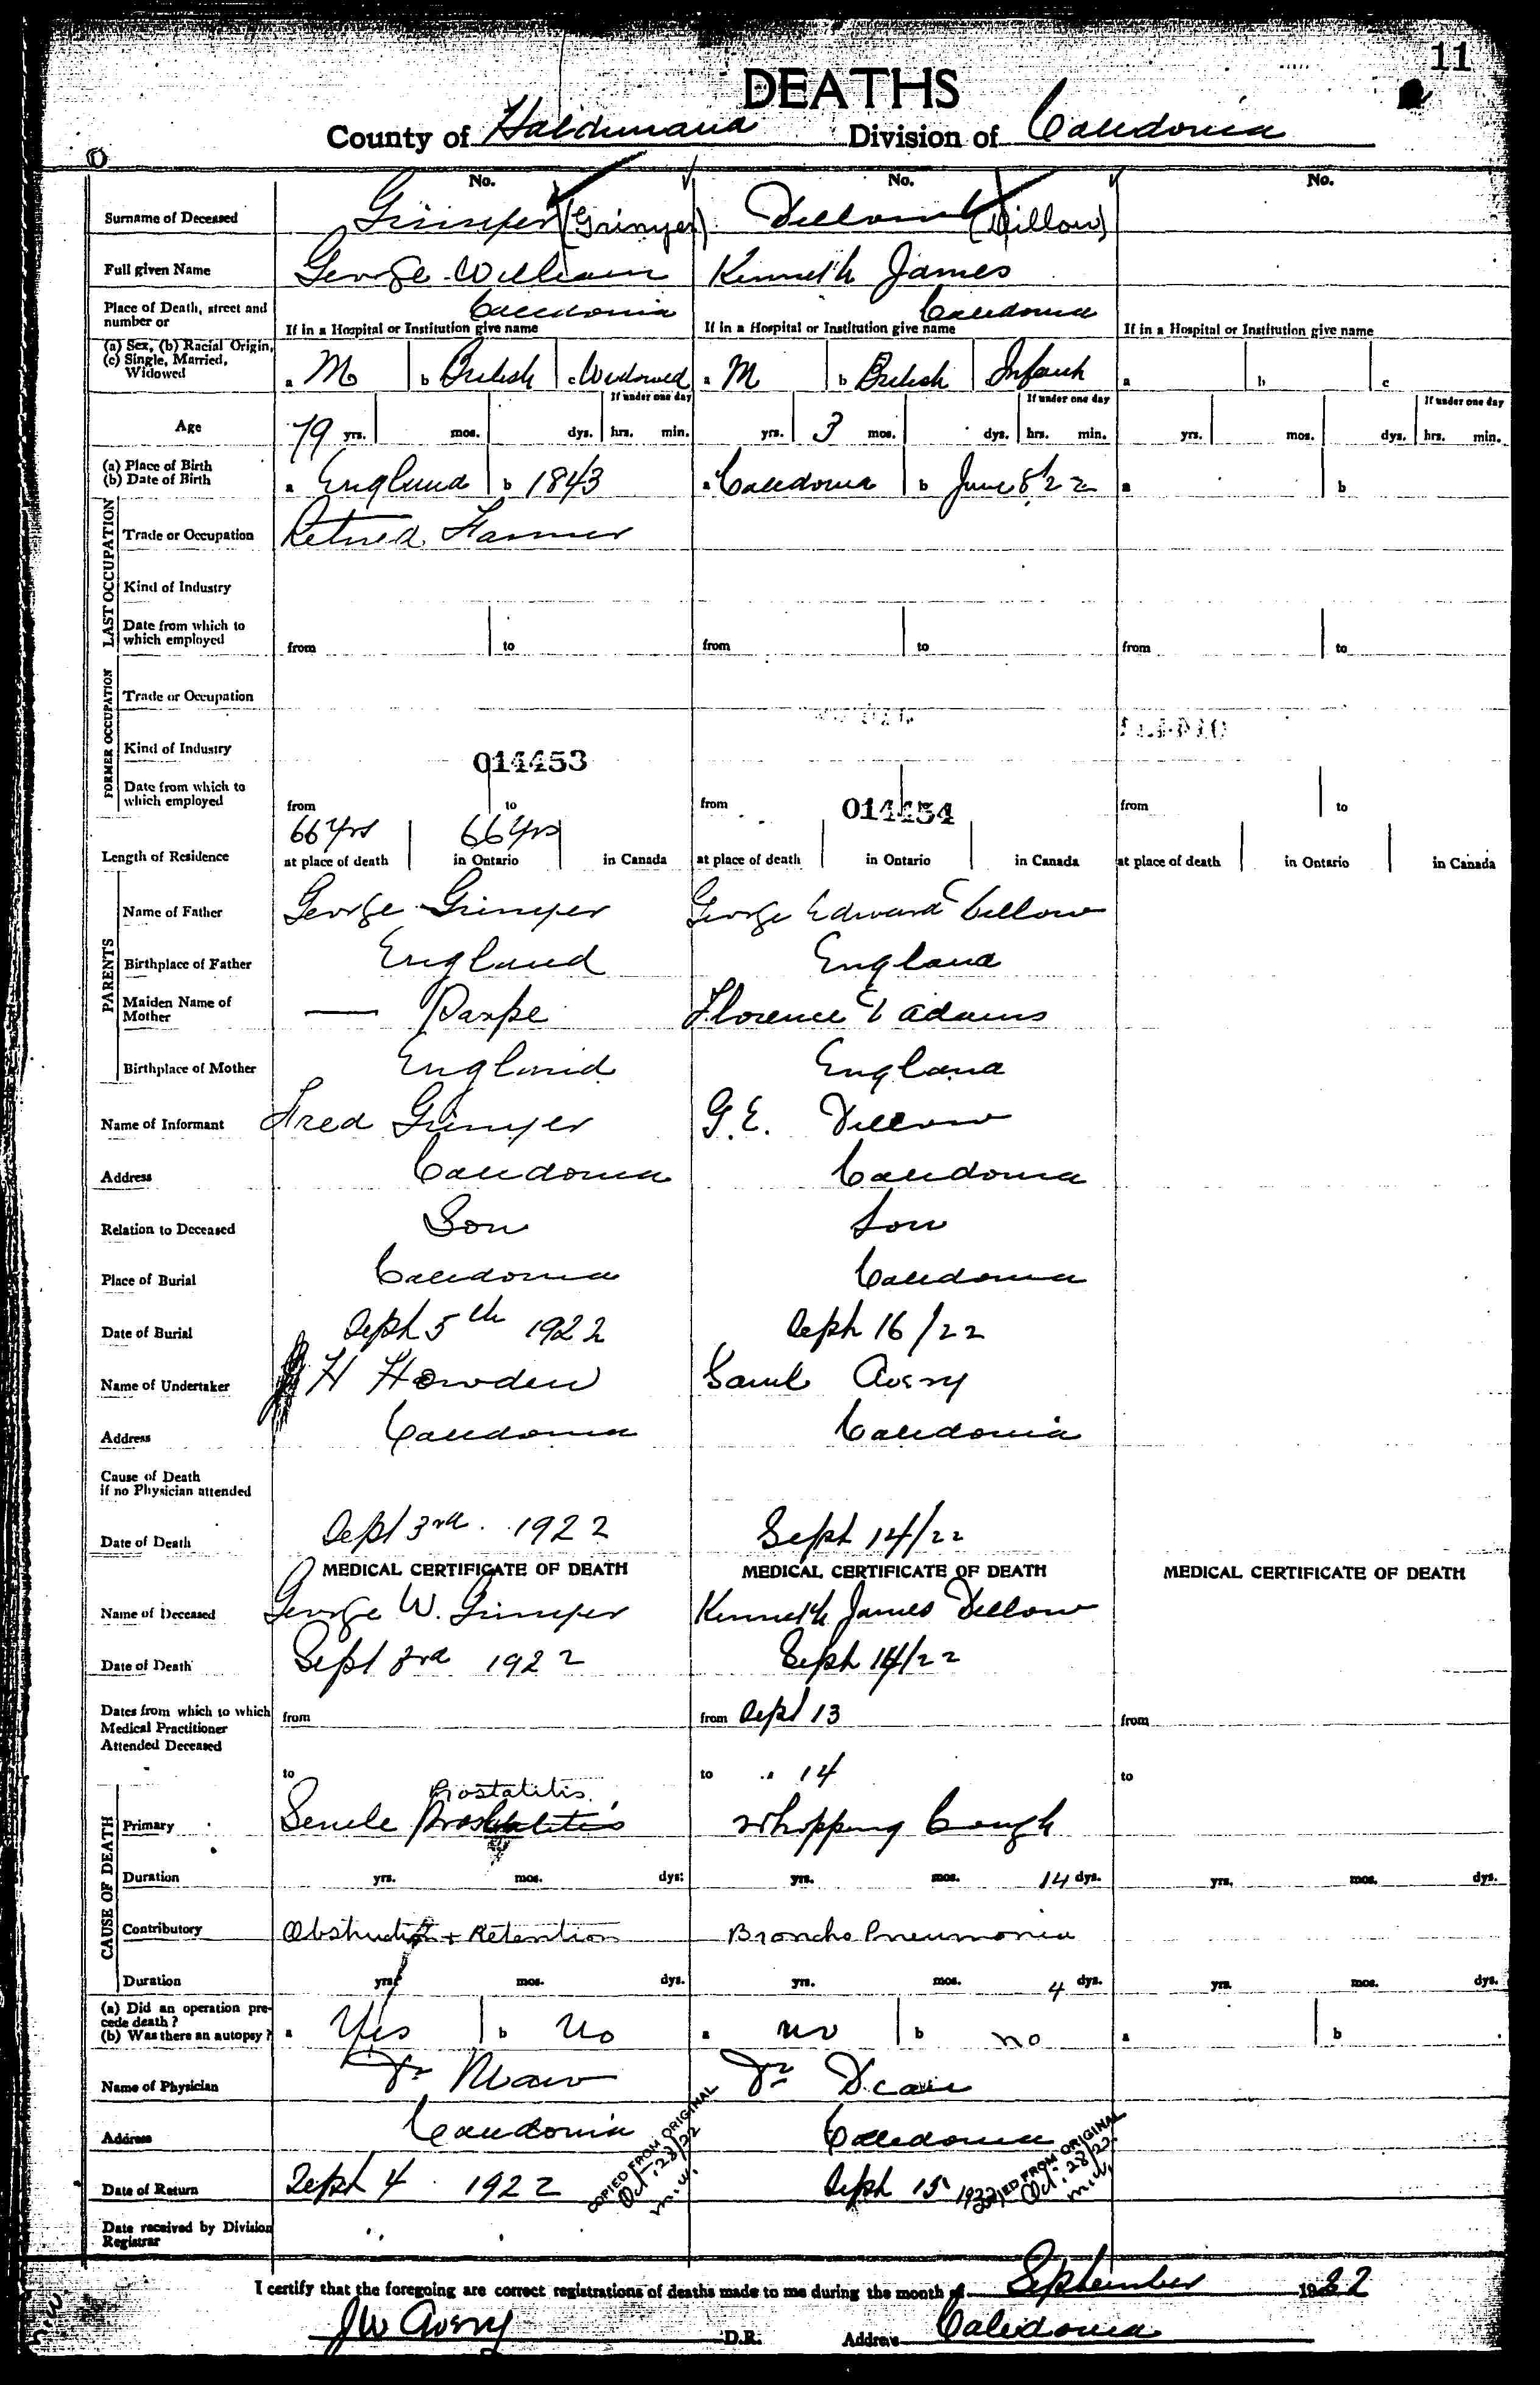 11
DEATHS
County of Haldimand Division of Caledonia
No. No. No.
Surname of Deceased Grinyer (Grinyer) Dillow (Dillow)
Full given Name George William Kenneth James
Place of Death, street and number or Caledonia Caledonia
If in a Hospital or Institution give name If in a Hospital or Institution give name If in a Hospital or Institution give name
(a) Sex, (b) Racial Origin, (c) Single, Married, Widowed a M b British c Widowed a M b British Infant a b c
If under one day If under one day If under one day
Age 79 yrs. mos. dys. hrs. min. yrs. 3 mos. dys. hrs. min. yrs. mos. dys. hrs. min.
(a) Place of Birth (b) Date of Birth a England b 1843 a Caledonia b June 8/22 a b
LAST OCCUPATION
Trade or Occupation Retired Farmer
Kind of Industry
Date from which to which employed from to from to from to
FORMER OCCUPATION
Trade or Occupation
Kind of Industry 014453
Date from which to which employed from to from 014454 from to
66 yrs 66 yrs
Length of Residence at place of death in Ontario in Canada at place of death in Ontario in Canada at place of death in Ontario in Canada
PARENTS
Name of Father George Grinyer George Edward Dillow
Birthplace of Father England England
Maiden Name of Mother — Florence E Adams
Birthplace of Mother England England
Name of Informant Fred Grinyer G.E. Dillow
Address Caledonia Caledonia
Relation to Deceased Son Son
Place of Burial Caledonia Caledonia
Date of Burial Sept 5th 1922 Sept 16/22
Name of Undertaker H Howden Saml Avery
Address Caledonia Caledonia
Cause of Death if no Physician attended
Date of Death Sept 3rd. 1922 Sept 14/22
MEDICAL CERTIFICATE OF DEATH MEDICAL CERTIFICATE OF DEATH MEDICAL CERTIFICATE OF DEATH
Name of Deceased George W. Grinyer Kenneth James Dillow
Date of Death Sept 3rd 1922 Sept 14/22
Dates from which to which Medical Practitioner Attended Deceased from from Sept 13 from
to to " 14 to
CAUSE OF DEATH
Prostatitis.
Primary Senile Whopping Cough
Duration yrs. mos. dys. yrs. mos. 14 dys. yrs. mos. dys.
Contributory Obstruction + Retention Broncho Pneumonia
Duration yrs. mos. dys. yrs. mos. 4 dys. yrs. mos. dys.
(a) Did an operation precede death? (b) Was there an autopsy? a Yes b No a no b no a b
Name of Physician Dr Dr
Address Caledonia Caledonia
COPIED FROM ORIGINAL Oct. 28/22 M.W. COPIED FROM ORIGINAL Oct. 28/22 M.W.
Date of Return Sept 4 1922 Sept 15 1922
Date received by Division Registrar " "
I certify that the foregoing are correct registrations of deaths made to me during the month of September 1922
JW Avery D.R. Address Caledonia